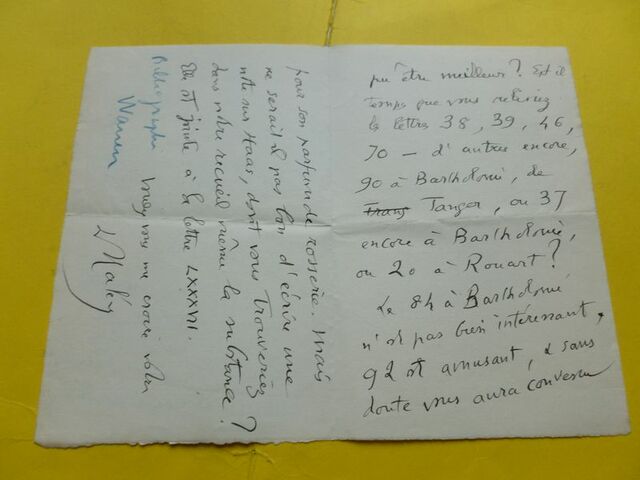 pu être meilleur? Est il
temps que vous relisiez
les lettres 38, 39, 46,
70 — d'autres encore,
90 à Bartholomé, de
Trang Tanger, ou 37
encore à Bartholomé,
ou 20 à Rouart?
Le 84 à Bartholomé
n'est pas bien intéressant,
92 est amusant, & sans
doute vous aura convenu
pour son parfum de rosserie. Mais
ne serait il pas bon d'écrire une
note sur Haas, dont vous trouveriez
dans notre recueil même la substance?
Elle est jointe à la lettre LXXXVII.
Bibliographie
Warren
Veuillez me croire votre
D Halévy